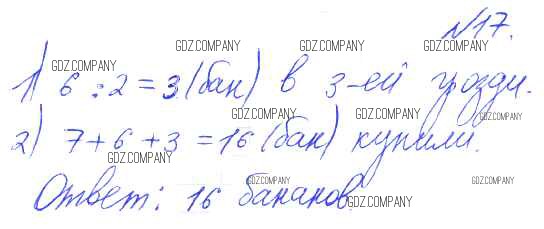 №17.
1) 6 : 2 = 3 (бан) в 3-ей грозди.
2) 7 + 6 + 3 = 16 (бан) купили.
Ответ: 16 бананов.
GDZ.COMPANY
GDZ.COMPANY
GDZ.COMPANY
GDZ.COMPANY
GDZ.COMPANY
GDZ.COMPANY
GDZ.COMPANY
GDZ.COMPANY
GDZ.COMPANY
GDZ.COMPANY
GDZ.COMPANY